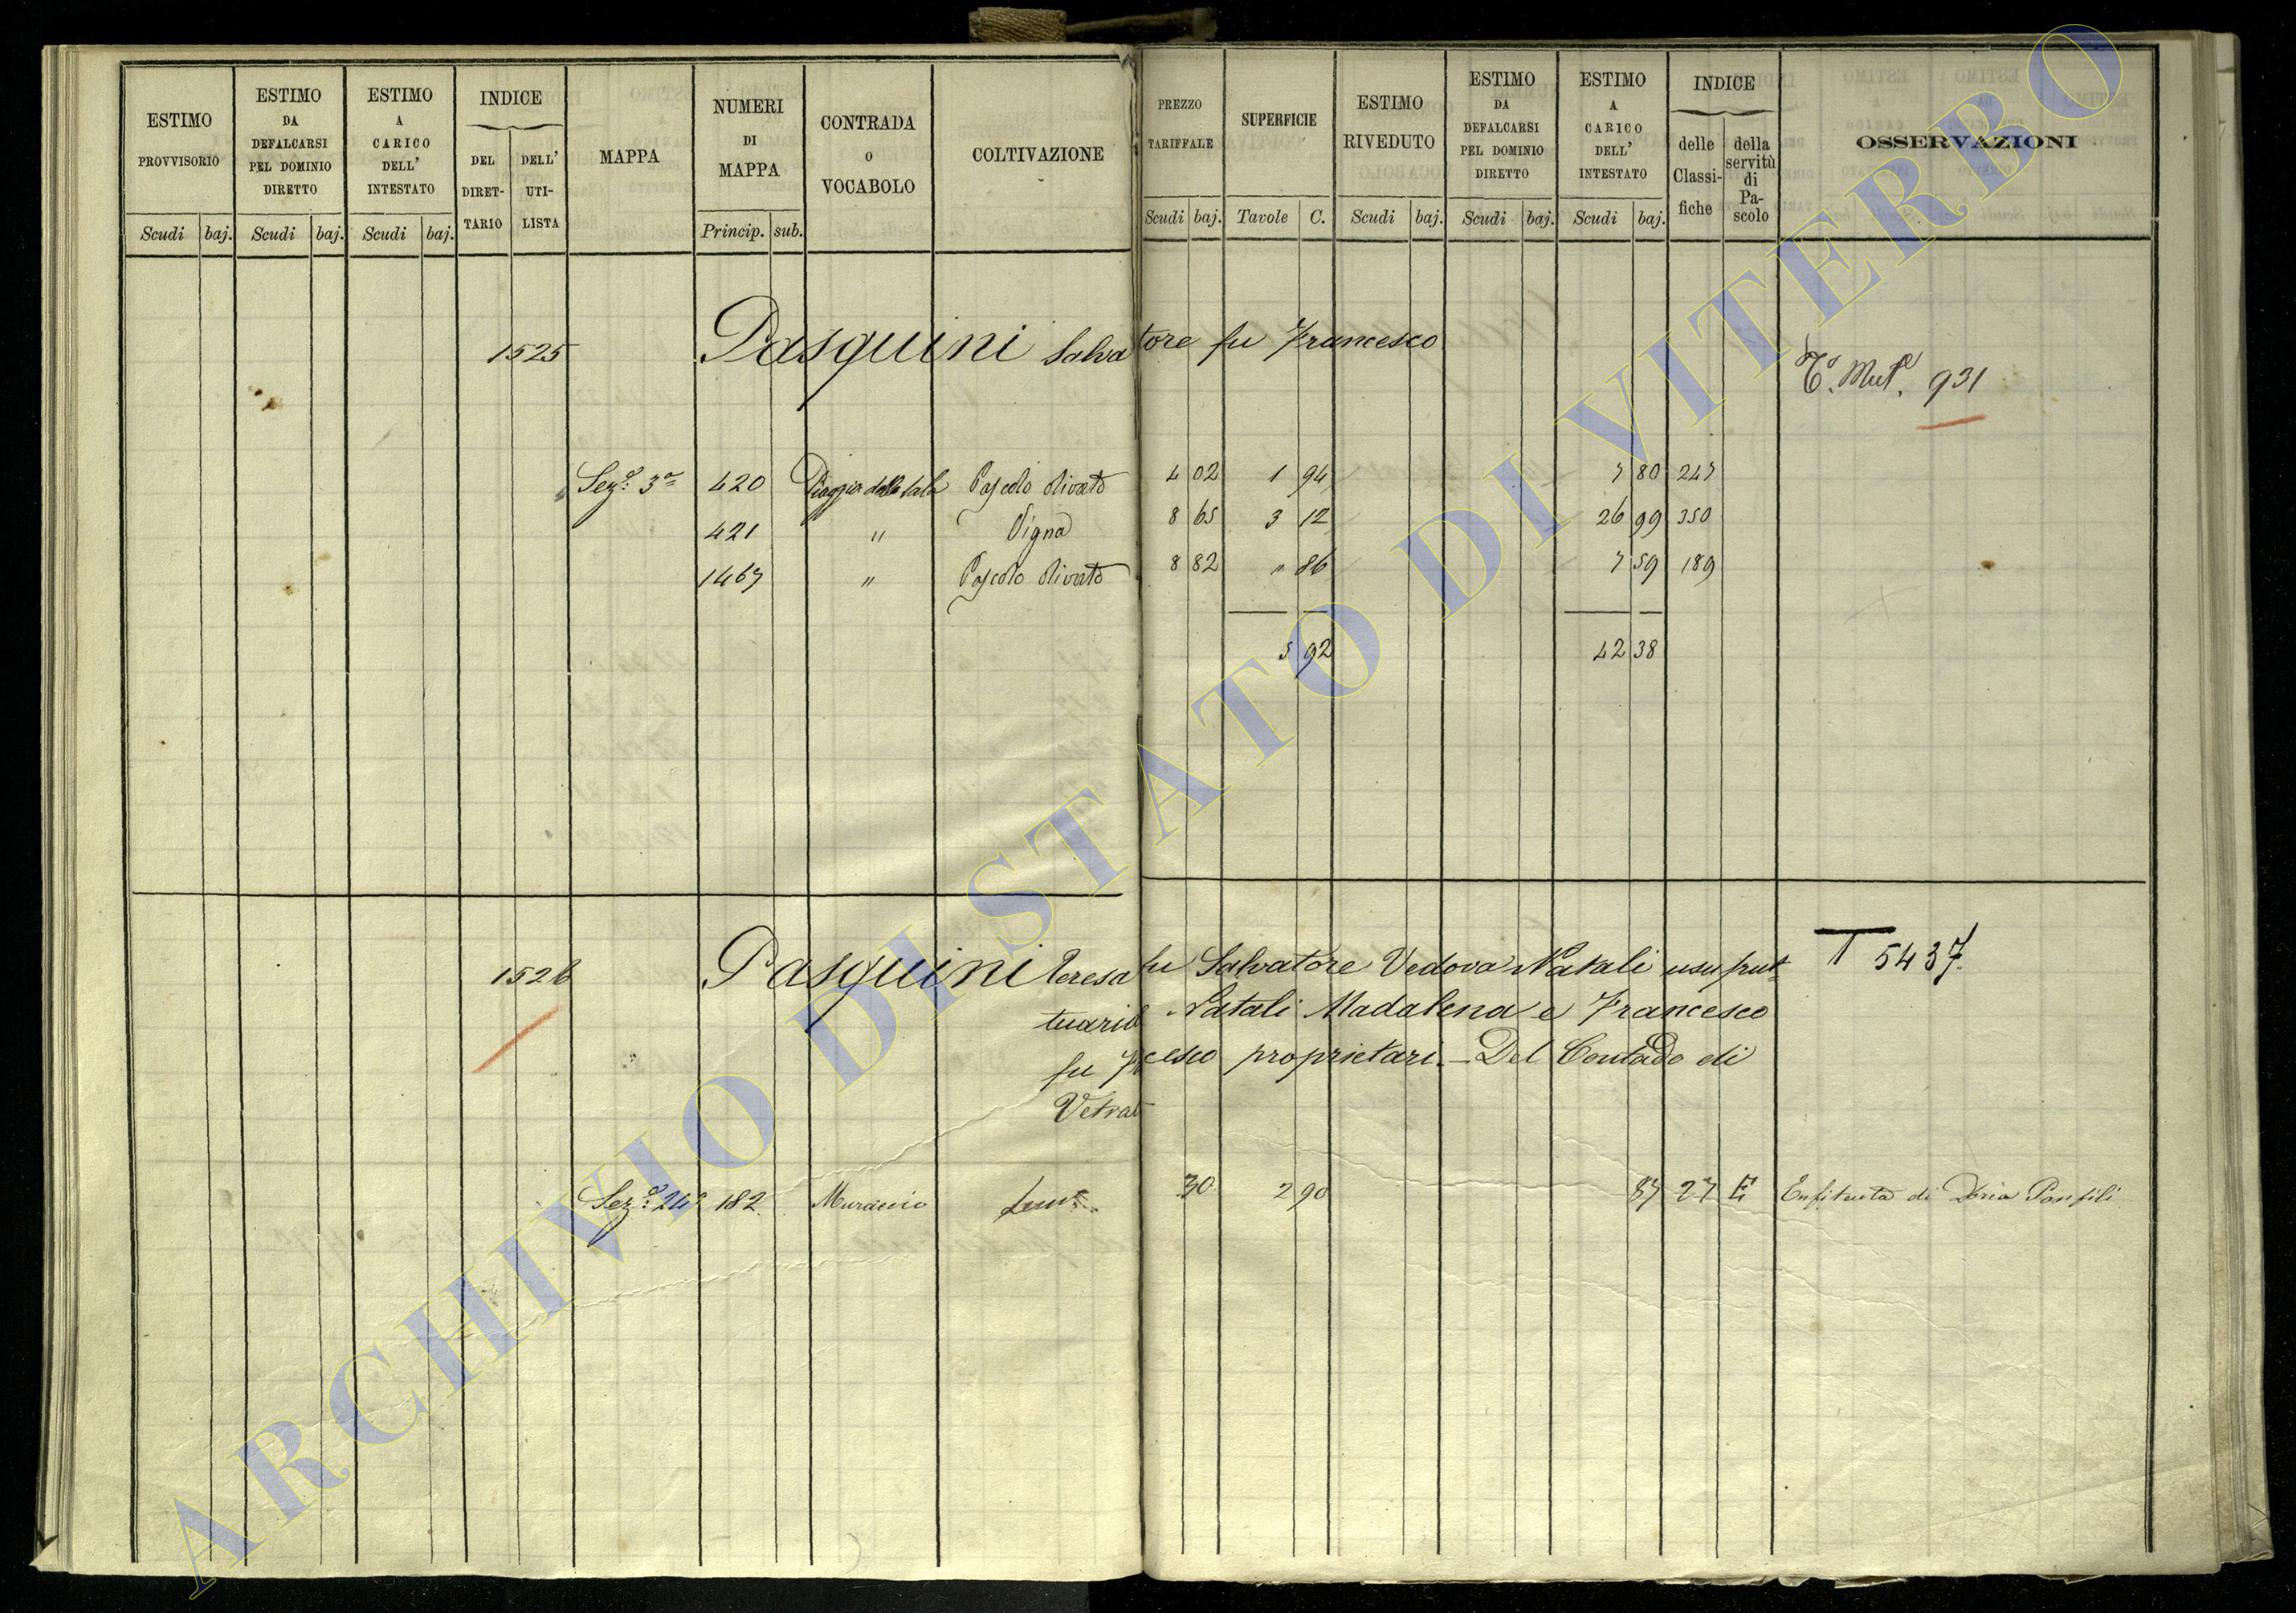 ESTIMO PROVVISORIO Scudi baj.
ESTIMO DA DEFALCARSI PEL DOMINIO DIRETTO Scudi baj.
ESTIMO A CARICO DELL' INTESTATO Scudi baj.
INDICE DEL DIRET-TARIO DELL' UTI-LISTA
MAPPA
NUMERI DI MAPPA Princip. sub.
CONTRADA O VOCABOLO
COLTIVAZIONE
PREZZO TARIFFALE Scudi baj.
SUPERFICIE Tavole C.
ESTIMO RIVEDUTO Scudi baj.
ESTIMO DA DEFALCARSI PEL DOMINIO DIRETTO Scudi baj.
ESTIMO A CARICO DELL' INTESTATO Scudi baj.
INDICE delle Classi-fiche della servitù di Pa-scolo
OSSERVAZIONI
1525 Pasquini Salvatore fu Francesco
Mut. 931
Sez.e 3a 420 Piaggia della Pascolo olivato 4 02 1 94 7 80 247
421 " Vigna 8 65 3 12 26 99 350
1467 " Pascolo olivato 8 82 " 86 7 59 189
5 92 42 38
1526 Pasquini Teresa fu Salvatore Vedova Natali usufrut- T 5437
tuaria Natali Madalena e Francesco
fu Fr cesco proprietari. - Del Contado di
Vetral
Sez.e 182 30 2 90 87 27 E Enfiteuta di Doria Panfili
ARCHIVIO DI STATO DI VITERBO